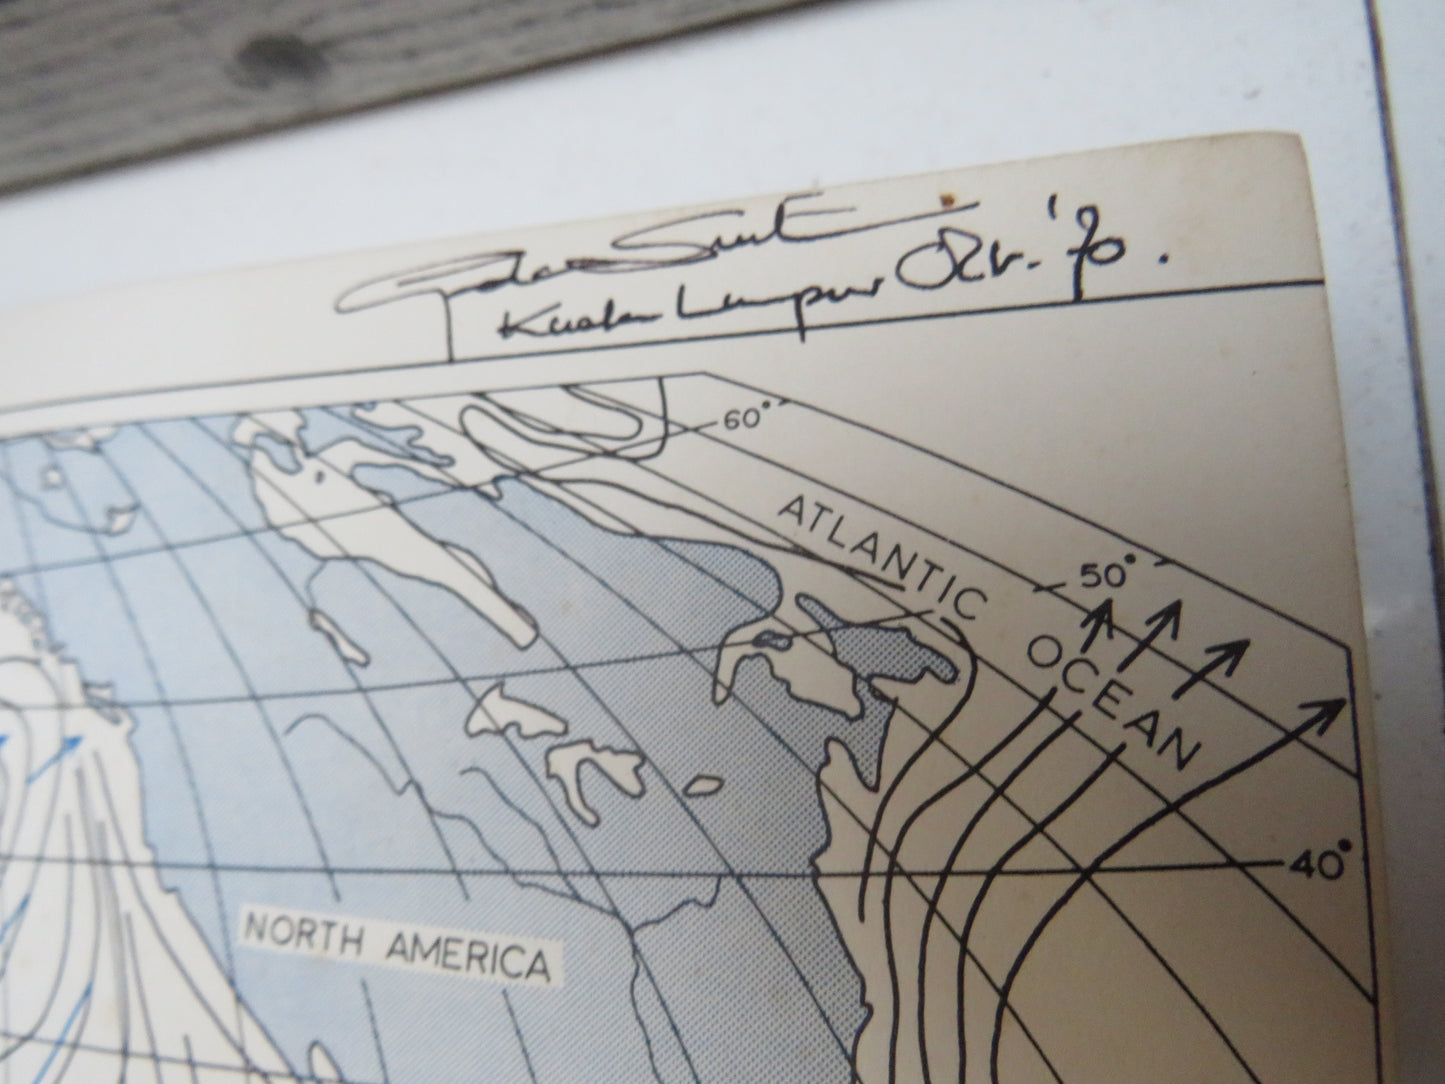 Kuala Lumpur Okt. '70.
60°
ATLANTIC
50°
OCEAN
40°
NORTH AMERICA